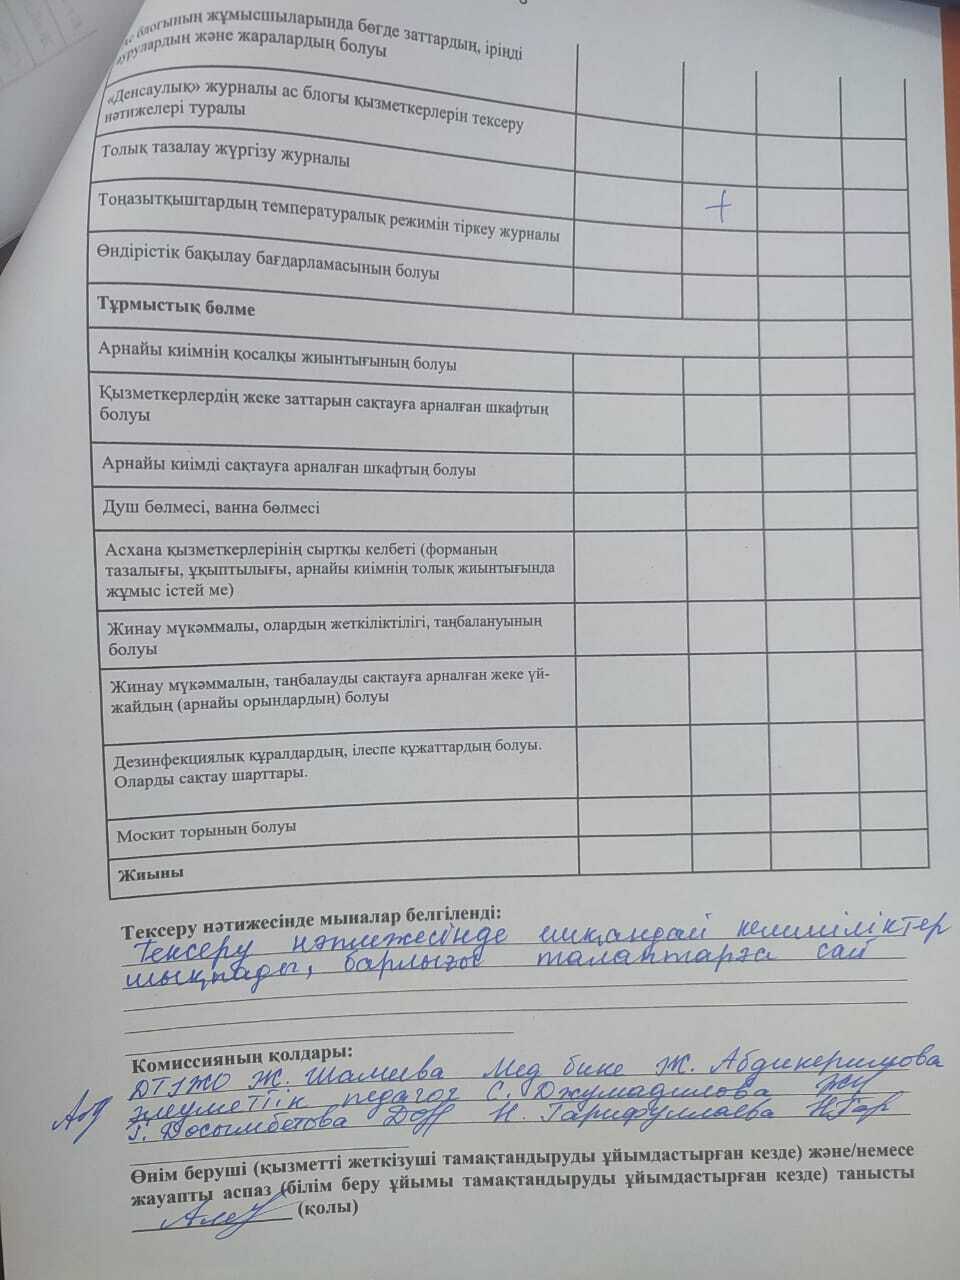 блогының жұмысшыларында бөгде заттардың, іріңді
жаралардың және жаралардың болуы
«Денсаулық» журналы ас блогы қызметкерлерін тексеру
нәтижелері туралы
Толық тазалау жүргізу журналы
Тоңазытқыштардың температуралық режимін тіркеу журналы
+
Өндірістік бақылау бағдарламасының болуы
Тұрмыстық бөлме
Арнайы киімнің қосалқы жиынтығының болуы
Қызметкерлердің жеке заттарын сақтауға арналған шкафтың
болуы
Арнайы киімді сақтауға арналған шкафтың болуы
Душ бөлмесі, ванна бөлмесі
Асхана қызметкерлерінің сыртқы келбеті (форманың
тазалығы, ұқыптылығы, арнайы киімнің толық жиынтығында
жұмыс істей ме)
Жинау мүкәммалы, олардың жеткіліктілігі, таңбалануының
болуы
Жинау мүкәммалын, таңбалауды сақтауға арналған жеке үй-
жайдың (арнайы орындардың) болуы
Дезинфекциялық құралдардың, ілеспе құжаттардың болуы.
Оларды сақтау шарттары.
Москит торының болуы
Жиыны
Тексеру нәтижесінде мыналар белгіленді:
Тексеру нәтижесінде ешқандай кемшіліктер
шықпады, барлығы талаптарға сай
Комиссияның қолдары:
ДТІЖО Ж. Шамеева Мед бике Ж. Абдикеримова
әлеуметтік педагог С. Джумадилова
Г. Досымбетова Н. Гарифуллаева
Өнім беруші (қызметті жеткізуші тамақтандыруды ұйымдастырған кезде) және/немесе
жауапты аспаз (білім беру ұйымы тамақтандыруды ұйымдастырған кезде) танысты
(қолы)